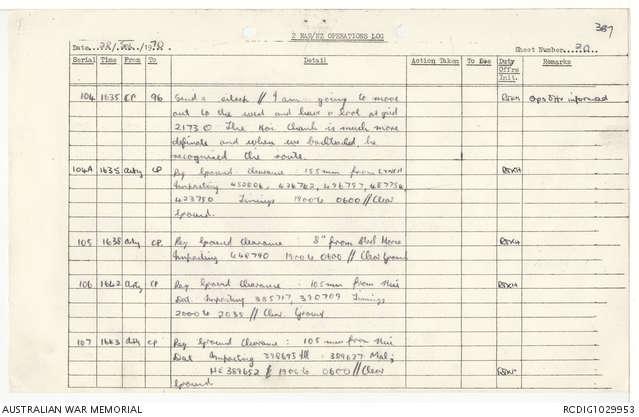 387
2 RAR/NZ OPERATIONS LOG
Date 28/Feb/1970 Sheet Number 20
Serial Time From To Detail Action Taken To Dec Duty Offrs Init. Remarks
104 1635 CP 96 Send a // I am going to move Ops Offr informed
out to the west and have a look at grid
2173 The Hoi Chanh is much more
definate and when we backtracked, he
recognised the route.
104A 1635 Arty CP Req Ground Clearance : 155mm from LYNCH
Impacting
423750 Timings 1900 to 0600 // Clear
Ground.
105 1638 Arty CP Req Ground Clearance : 8" from Steel Horse
Impacting 1900 to 0600 // Clear Ground
106 1642 Arty CP Req Ground Clearance : 105mm from Nui
Dat. Impacting 385717, 390709 Timings
2000 to 2035 // Clear Ground
107 1643 Arty CP Req Ground Clearance : 105 mm from Nui
Dat Impacting
HE 389652 1900 to 0600 // Clear
Ground
AUSTRALIAN WAR MEMORIAL RCDIG1029953